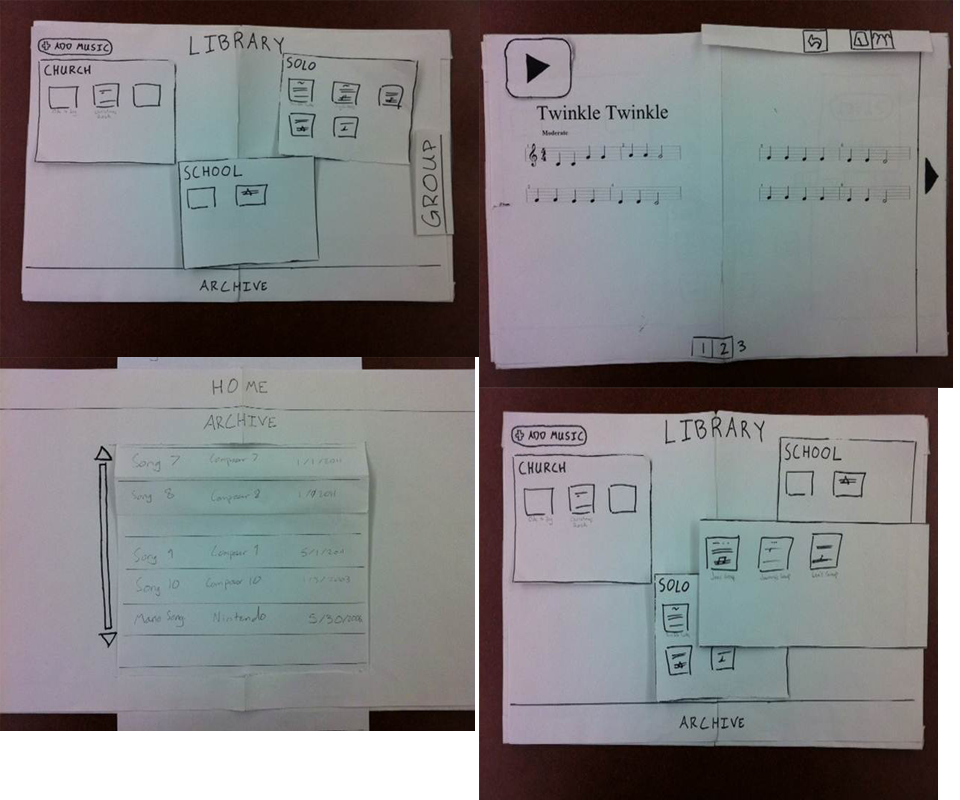 ADD MUSIC
LIBRARY
CHURCH
SOLO
SCHOOL
GROUP
ARCHIVE
Twinkle Twinkle
Moderate
1 2 3
HOME
ARCHIVE
Song 7 Composer 7
Song 8 Composer 8
Song 9 Composer 9
Song 10 Composer 10
Mario Song Nintendo
ADD MUSIC
LIBRARY
CHURCH
SCHOOL
SOLO
ARCHIVE